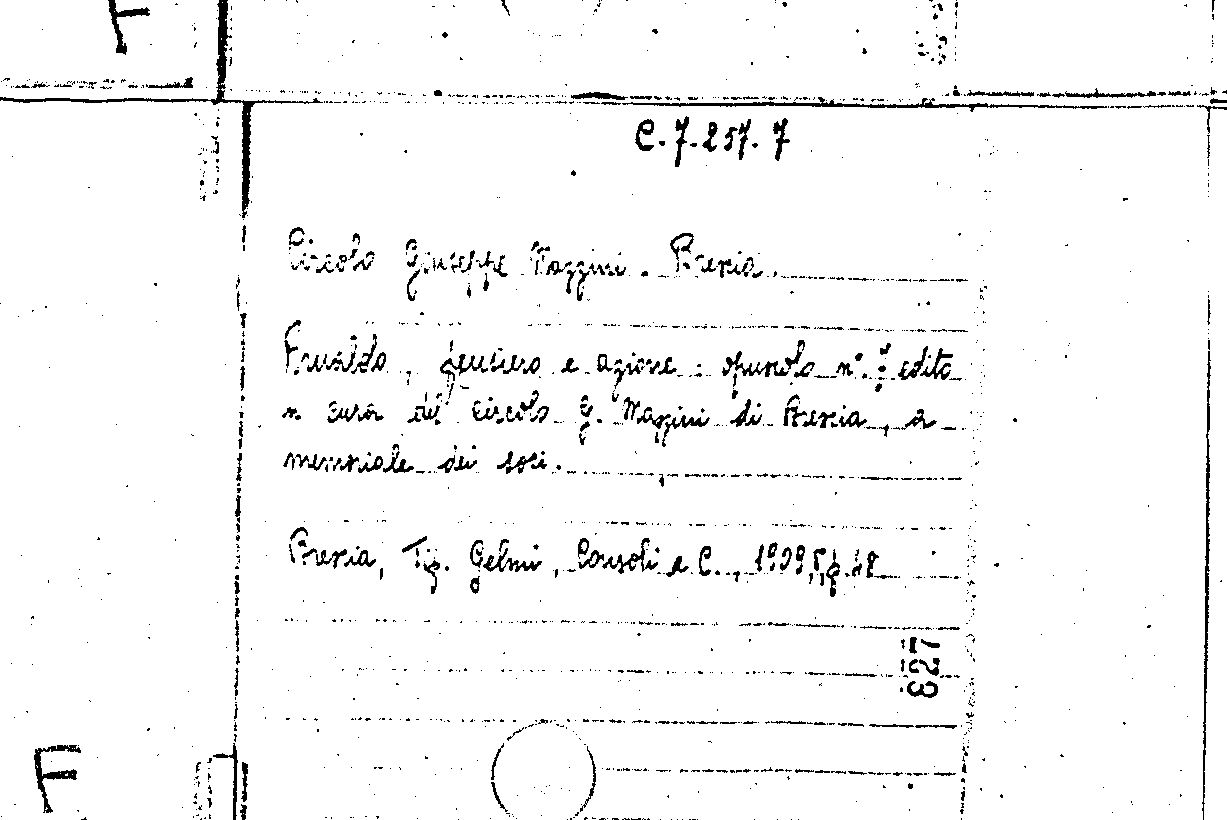 F
C.7.257.7
Circolo Giuseppe Mazzini. Brescia.
pensiero e azione: opuscolo n°. 7 edito
a cura del circolo G. Mazzini di Brescia, a
memoriale dei soci.
Brescia, Tip. Gelmi, Consoli e C., 1909, p. 48
327
F